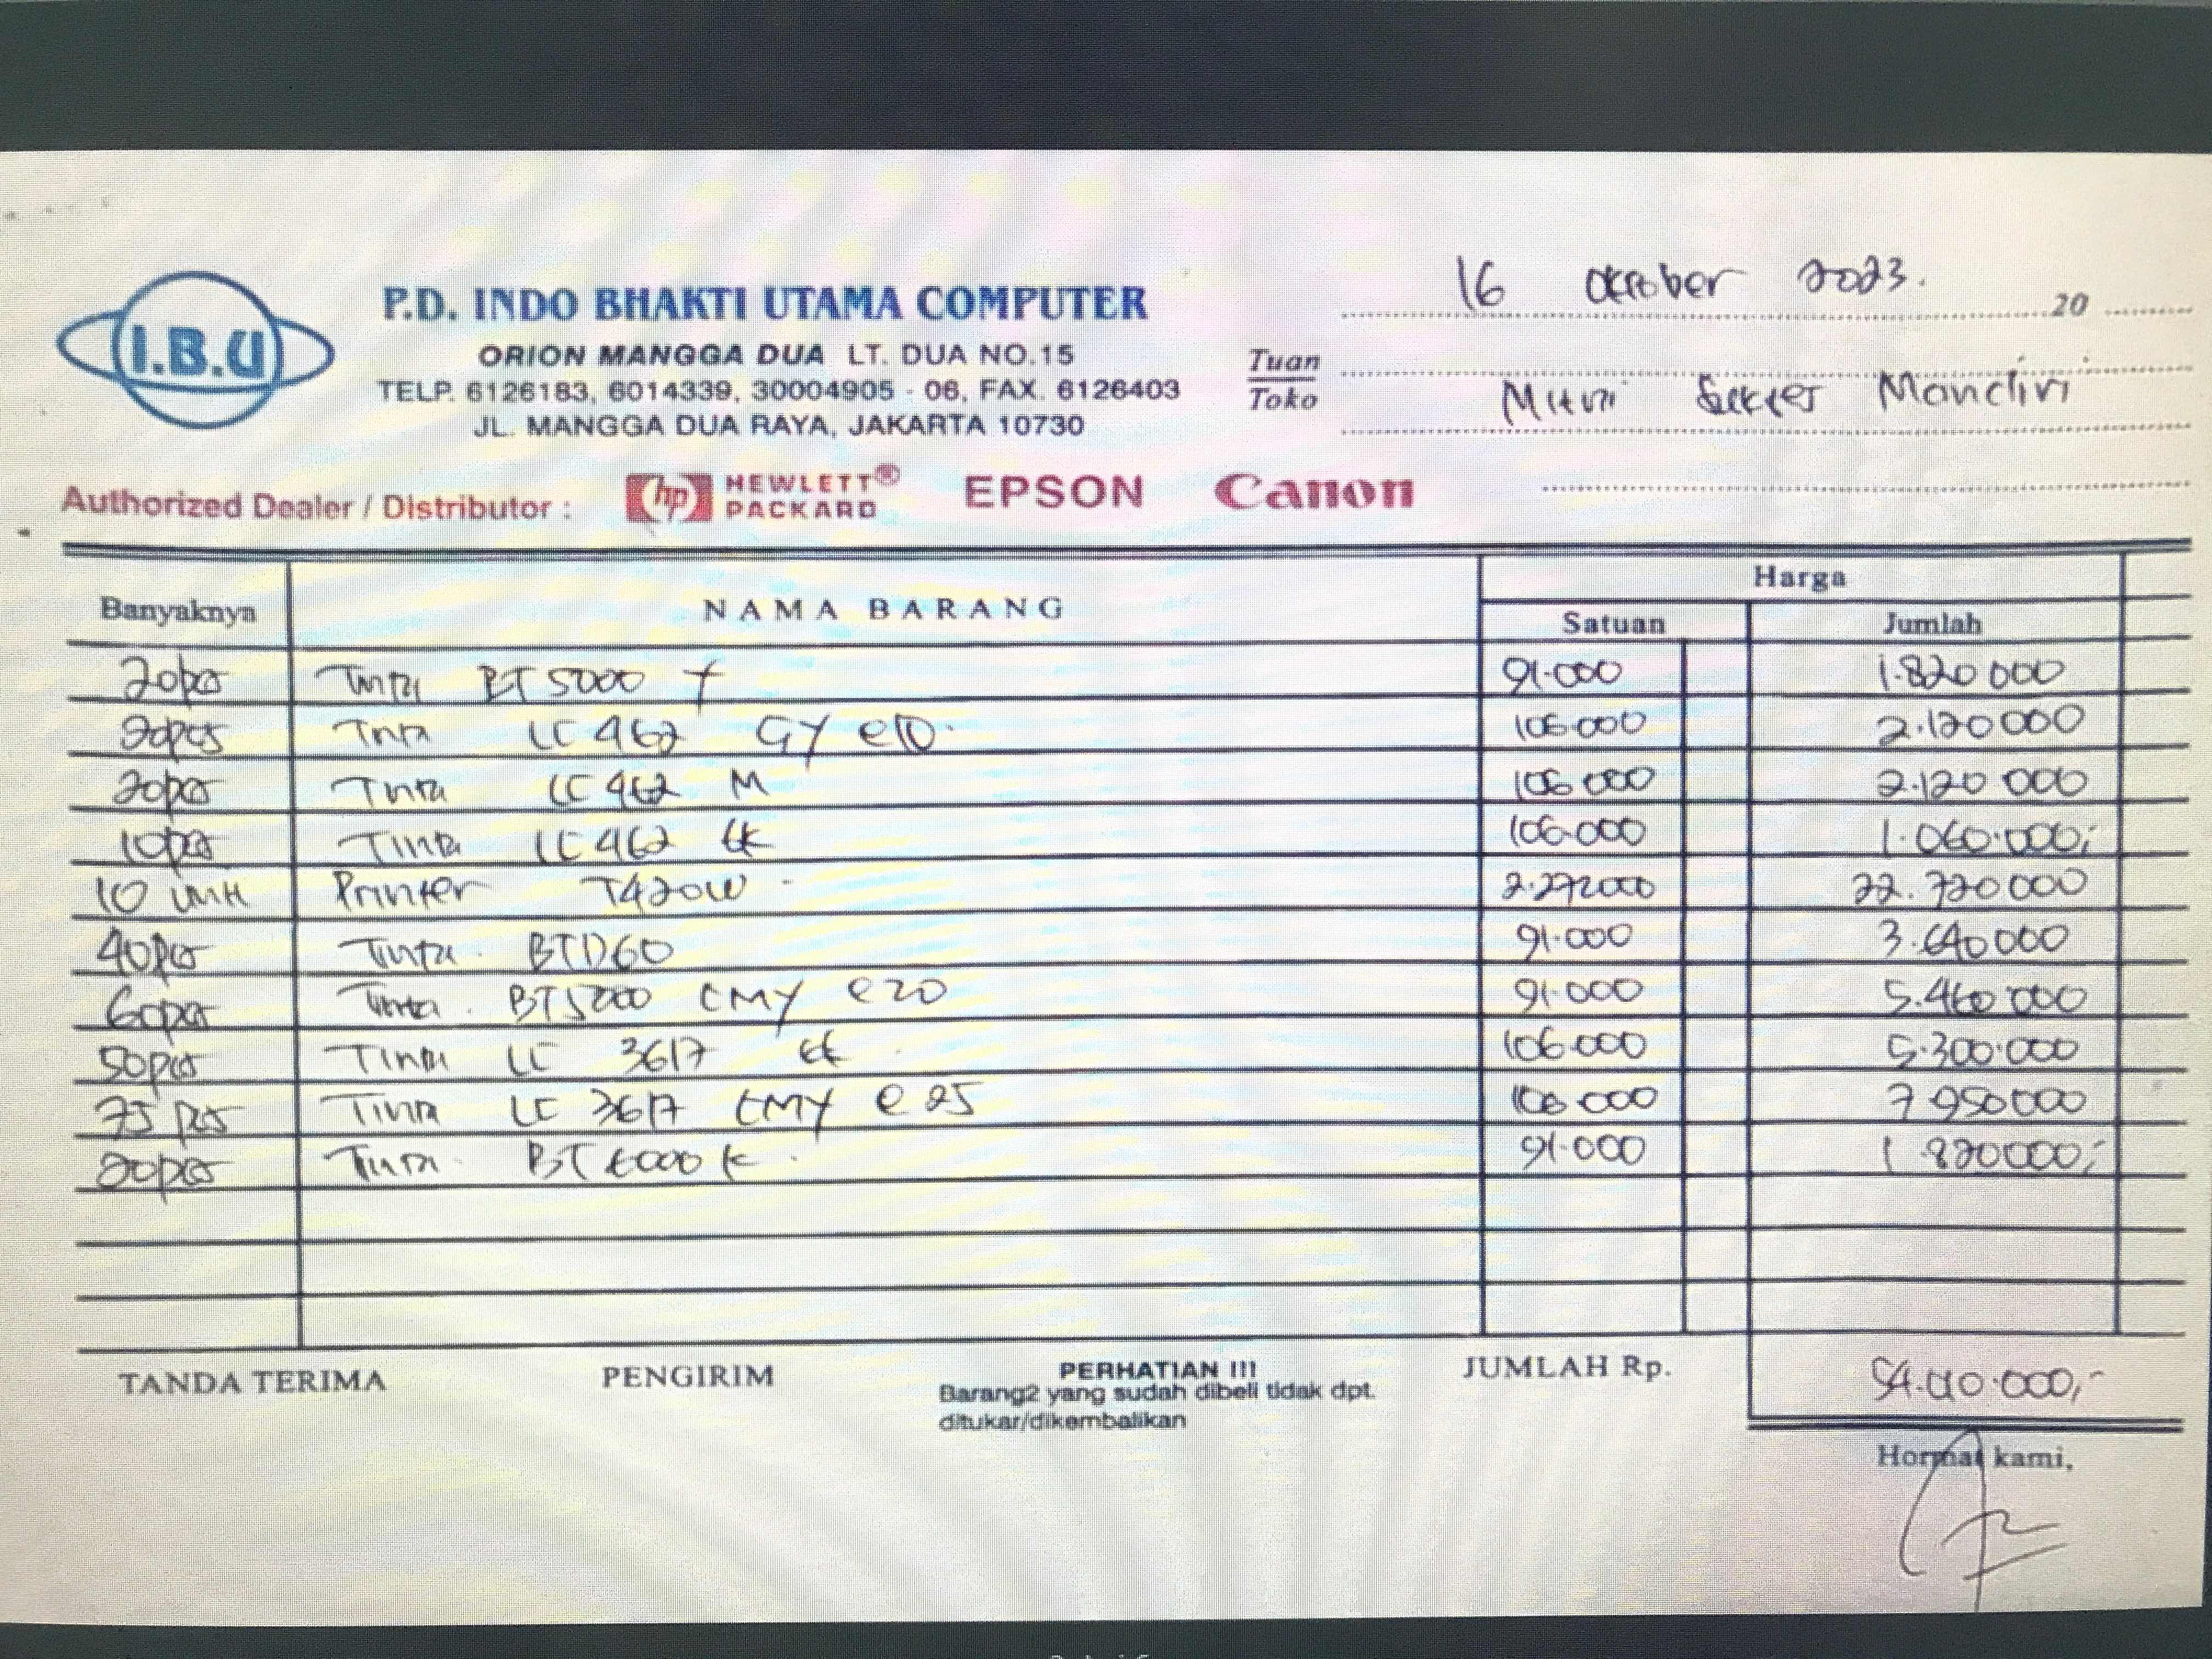 16 Oktober 2023. 20
I.B.U
P.D. INDO BHAKTI UTAMA COMPUTER
ORION MANGGA DUA LT. DUA NO.15
TELP. 6126183, 6014339, 30004905 - 06, FAX. 6126403
JL. MANGGA DUA RAYA, JAKARTA 10730
Tuan
Toko
Mitra Mandiri
Authorized Dealer / Distributor : hp HEWLETT® PACKARD EPSON Canon
Banyaknya NAMA BARANG Harga
Satuan Jumlah
20pcs Tinta BT5000 Y 91.000 1.820 000
20pcs Tinta LC 462 CY @10. 106.000 2.120 000
20pcs Tinta LC 462 M 106 000 2.120 000
10pcs Tinta LC 462 BK 106.000 1.060.000,-
10 unit Printer T420W 2.272000 22.720 000
40pcs Tinta BTD60 91.000 3.640 000
60pcs Tinta BT5000 CMY @20 91.000 5.460 000
50pcs Tinta LC 3617 BK 106.000 5.300.000
75 pcs Tinta LC 3617 CMY @25 106 000 7 950 000
20pcs Tinta BT6000 K 91.000 1.820000,-
TANDA TERIMA PENGIRIM PERHATIAN !!! JUMLAH Rp. 54.010.000,-
Barang2 yang sudah dibeli tidak dpt.
ditukar/dikembalikan
Hormat kami,